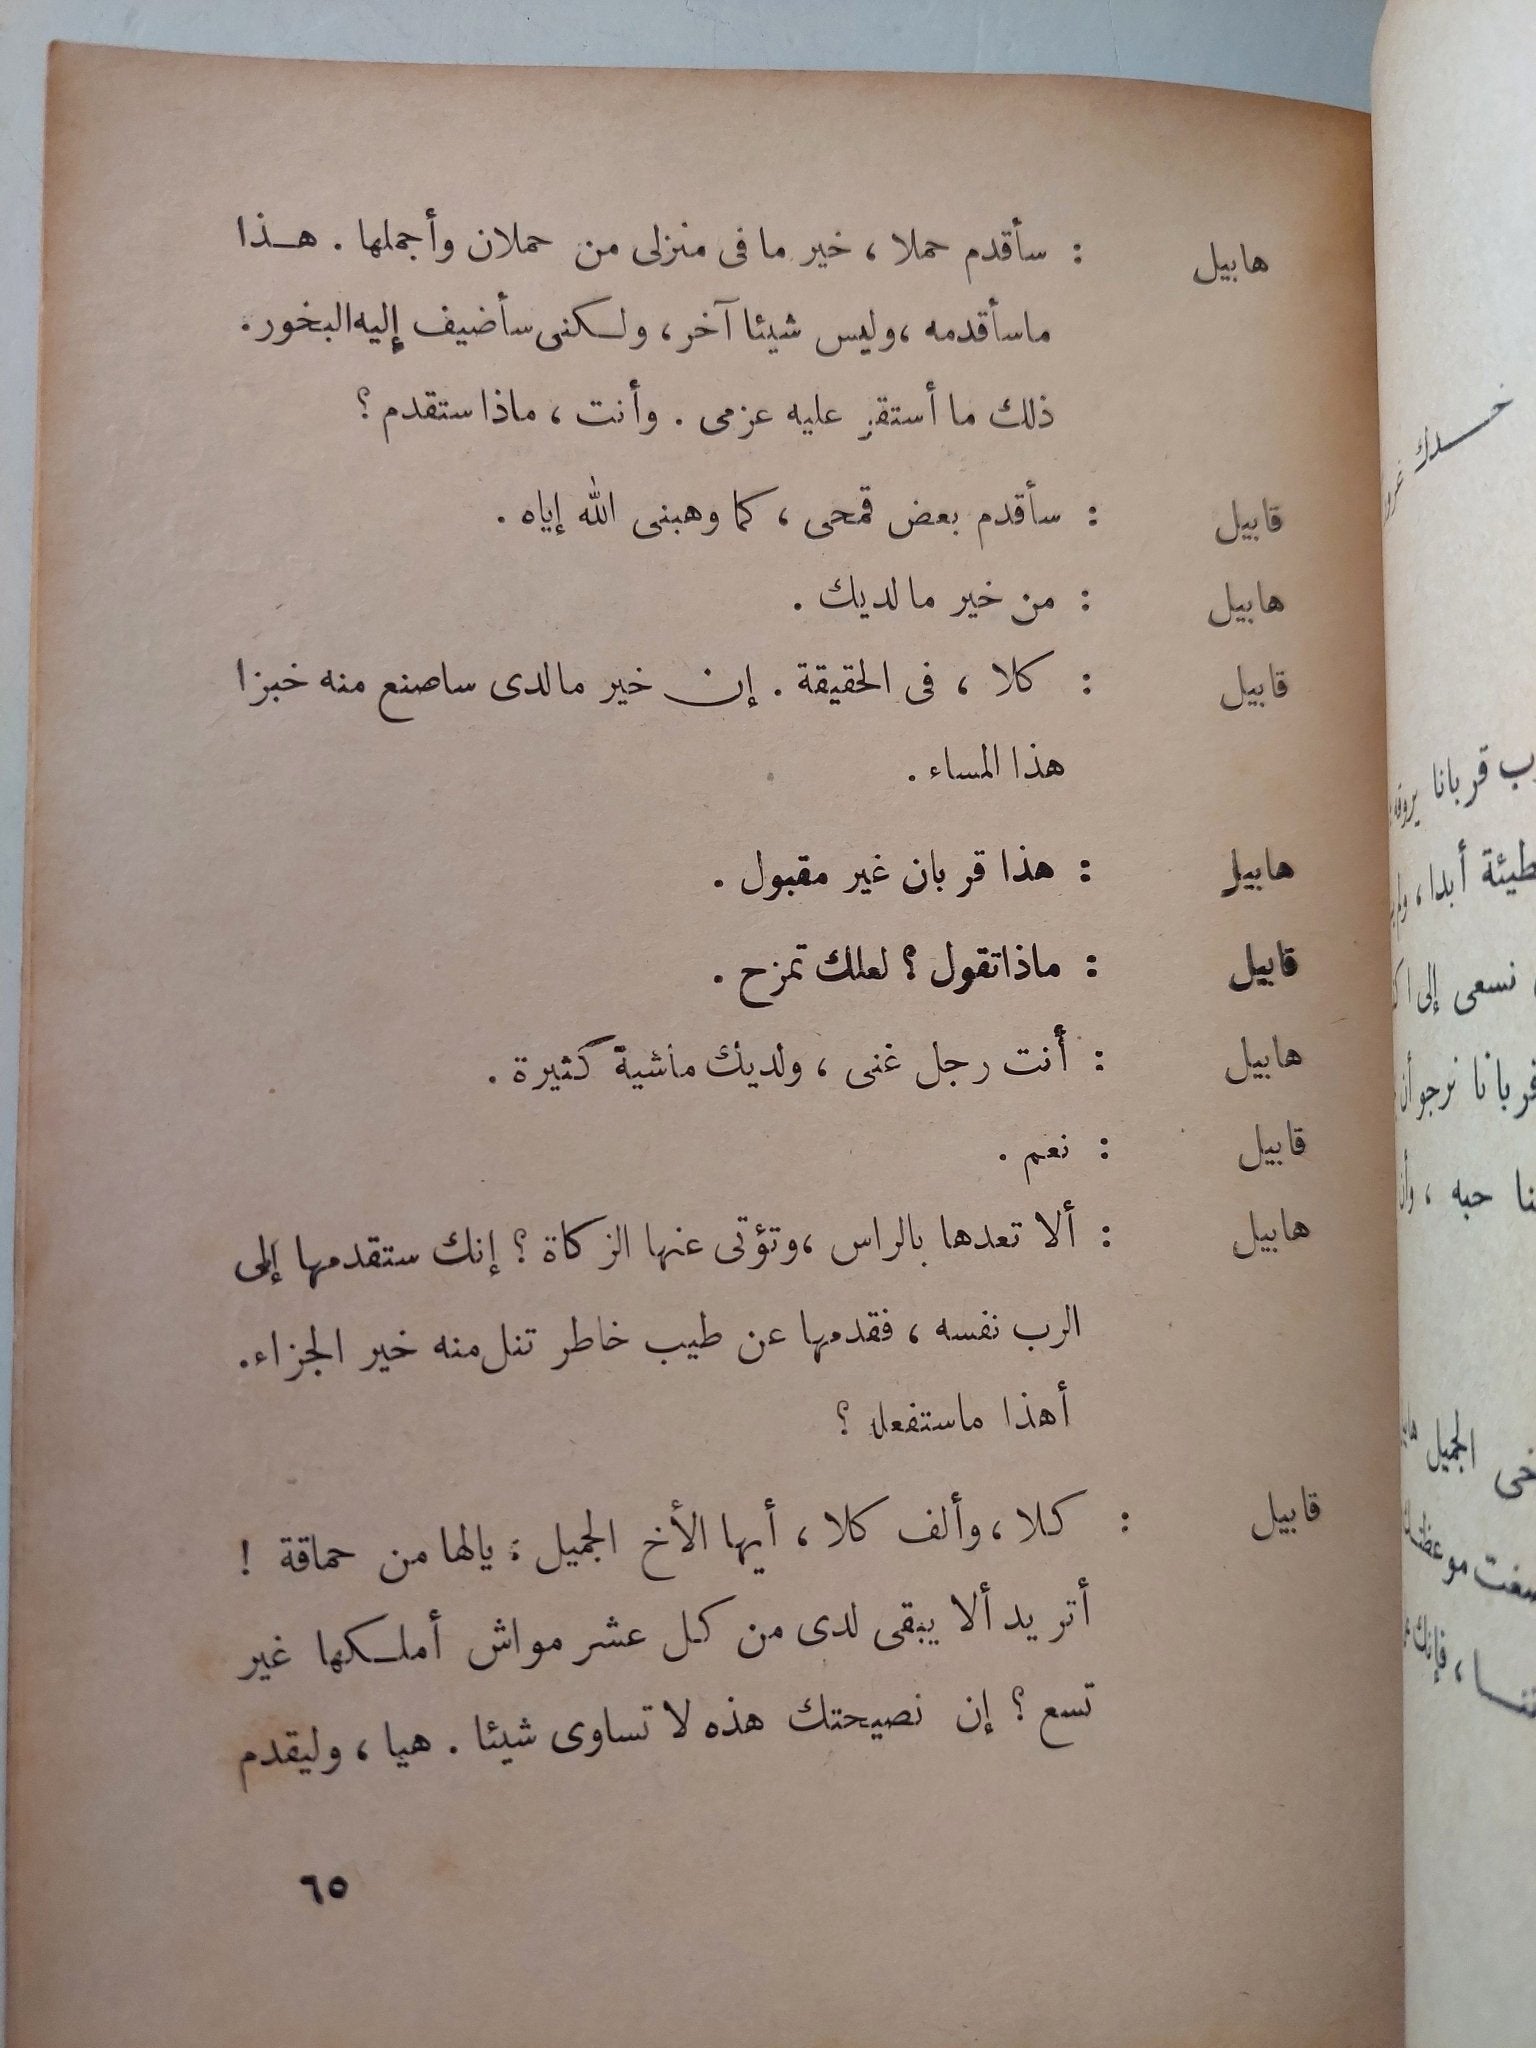 هابيل : سأقدم حملا ، خير ما فى منزلى من حملان وأجملها . هـذا
ماسأقدمه ، وليس شيئا آخر ، ولـكنى سأضيف إليه البخور .
ذلك ما أستقر عليه عزمى . وأنت ، ماذا ستقدم ؟
قابيل : سأقدم بعض قمحى ، كما وهبنى الله إياه .
هابيل : من خير ما لديك .
قابيل : كلا ، فى الحقيقة . إن خير ما لدى ساصنع منه خبزا
هذا المساء .
هابيل : هذا قربان غير مقبول .
قابيل : ماذا تقول ؟ لعلك تمزح .
هابيل : أنت رجل غنى ، ولديك ماشية كثيرة .
قابيل : نعم .
هابيل : ألا تعدها بالراس ، وتؤتى عنها الزكاة ؟ إنك ستقدمها إلى
الرب نفسه ، فقدمها عن طيب خاطر تنل منه خير الجزاء .
أهذا ماستفعل ؟
قابيل : كلا ، وألف كلا ، أيها الأخ الجميل : يالها من حماقة !
أتريد ألا يبقى لدى من كل عشر مواش أملـكها غير
تسع ؟ إن نصيحتك هذه لا تساوى شيئا . هيا ، وليقدم
٦٥
خـدك
قربانا يروقه
أبدا ،
نسعى إلى
نرجو أن
حبه ،
الجميل